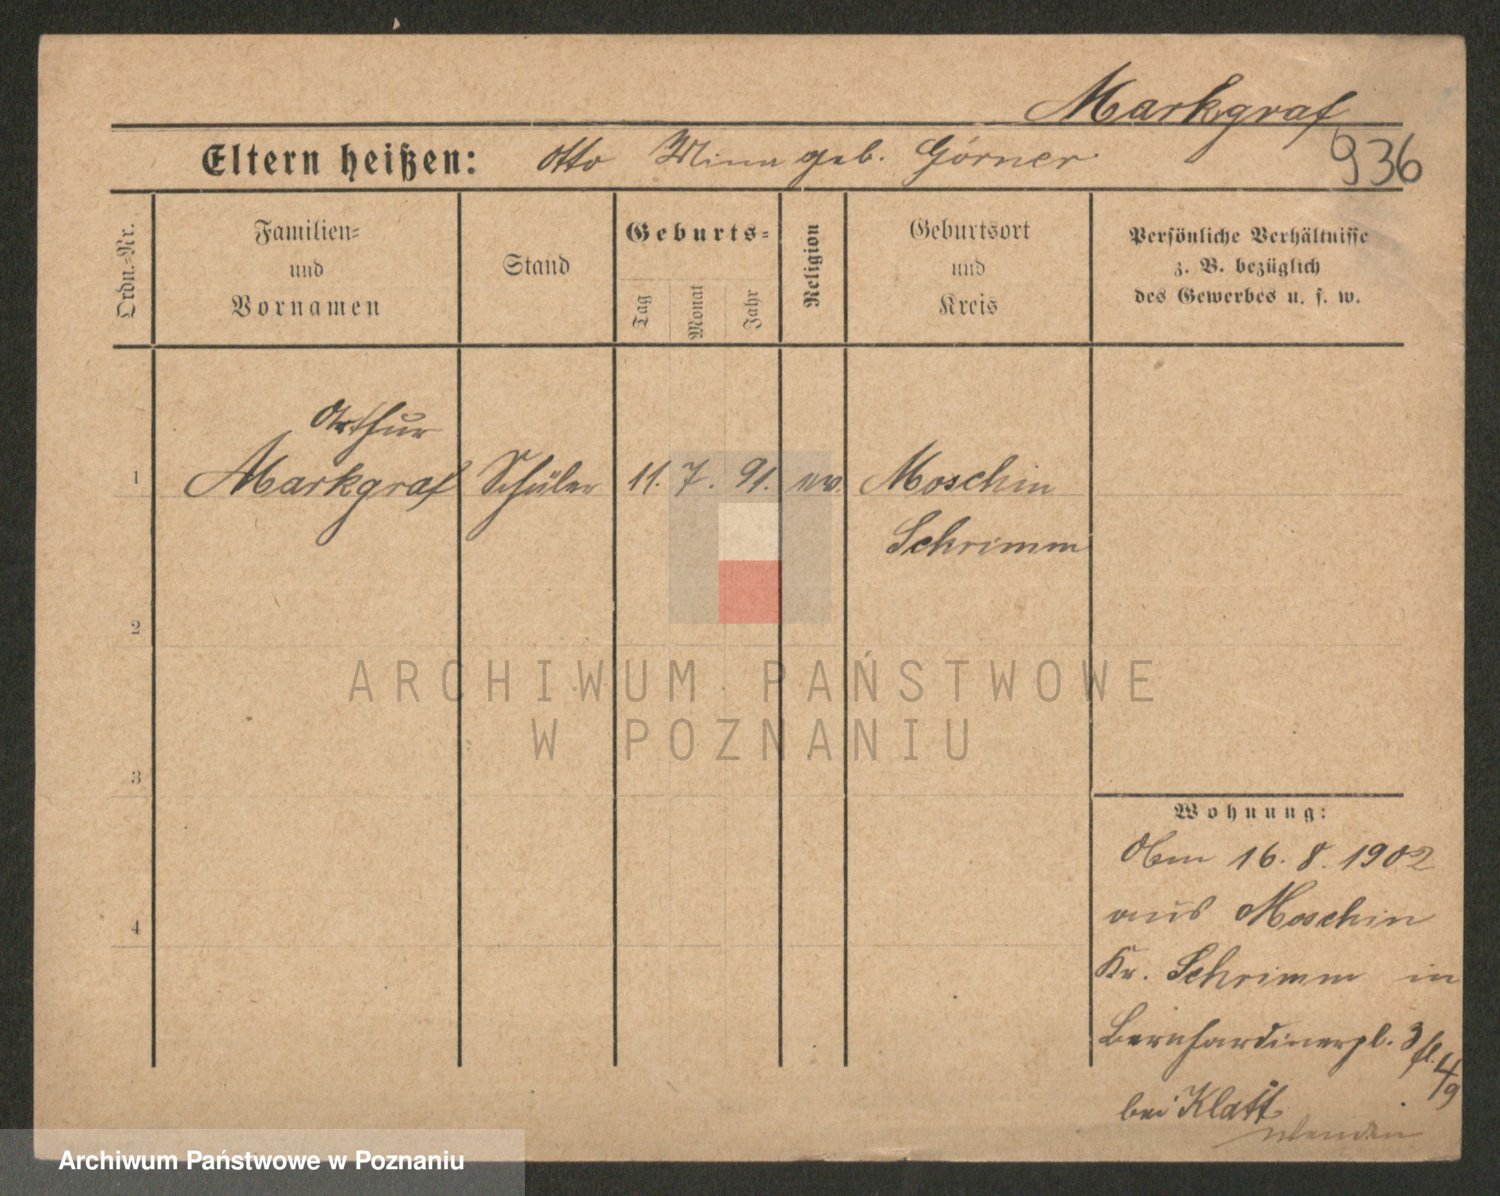 Markgraf
Eltern heißen: Otto Minna geb. Görner
936
Ordn.-Nr.
Familien-
und
Vornamen
Stand
Geburts-
Tag
Monat
Jahr
Religion
Geburtsort
und
Kreis
Persönliche Verhältnisse
z. B. bezüglich
des Gewerbes u. s. w.
Arthur
1 Markgraf Schüler 11. 7. 91. ev. Moschin
Schrimm
2
3
4
Wohnung:
16. 8. 1902
aus Moschin
Kr. Schrimm in
Bernhardinerpl. 3
4/9
bei Klatt
ARCHIWUM PAŃSTWOWE
W POZNANIU
Archiwum Państwowe w Poznaniu